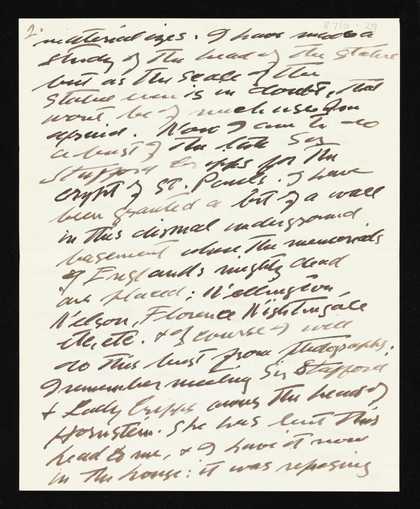 2.
materializes. I have made a
study of the head of the statue
but as the scale of the
statue even is in doubt, that
won't be of much use I'm
afraid. Now I am to do
a bust of the late Sir
Stafford Cripps for the
crypt of St. Pauls. I have
been granted a bit of a wall
in this dismal underground
basement where the memorials
of England's mighty dead
are placed: Wellington,
Nelson, Florence Nightingale
etc. etc. & of course I will
do this bust from photographs;
I remember meeting Sir Stafford
& Lady Cripps among the heads of
Hornstein. She has lent this
head to me, & I have it now
in the house: it was reposing